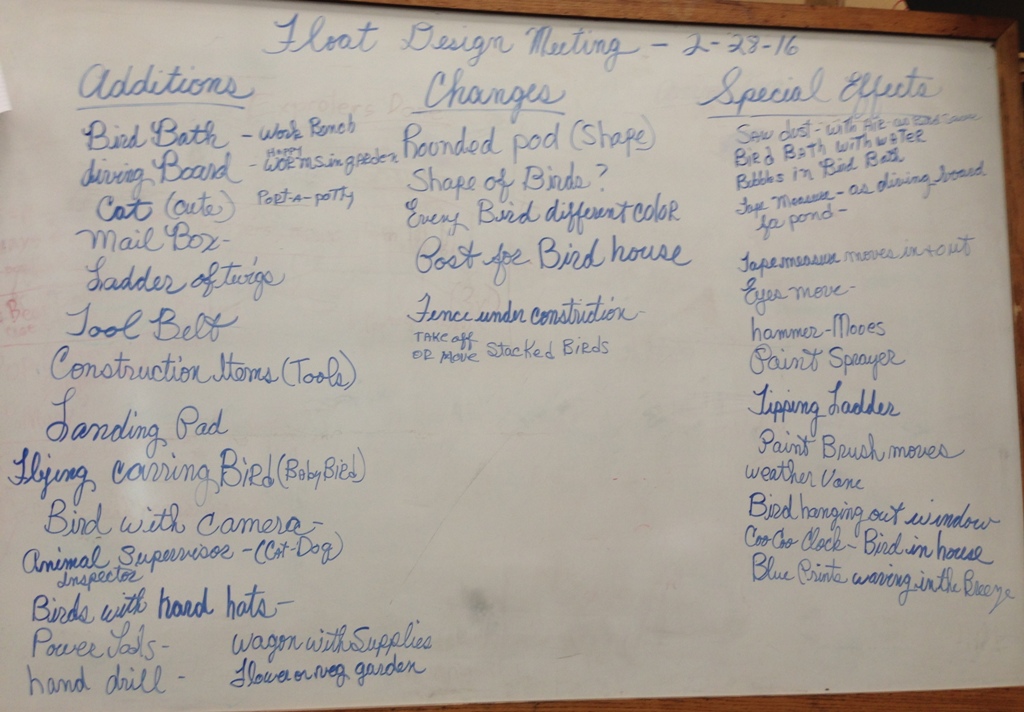 Float Design Meeting - 2-28-16
Additions
Bird Bath - Work Bench
diving Board - Happy Worms in garden
Cat (cute) Port-a-potty
Mail Box-
Ladder of twigs
Tool Belt
Construction Items (Tools)
Landing Pad
Flying carring Bird (Baby Bird)
Bird with camera-
Animal Supervisor - (Cat-Dog)
Inspector
Birds with hard hats-
Power Tools- wagon with Supplies
hand drill - Flower or veg garden
Changes
Rounded pod (Shape)
Shape of Birds?
Every Bird different color
Post for Bird house
Fence under constriction-
TAKE off
OR MOVE Stacked Birds
Special Effects
Saw dust - with Air as Bird
Bird Bath with water
Bubbles in Bird Bath
Tape Measure - as diving board
for pond -
Tape measure moves in + out
Eyes move-
hammer-Moves
Paint Sprayer
Tipping Ladder
Paint Brush moves
weather Vane
Bird hanging out window
Coo Coo Clock - Bird in house
Blue Prints waving in the Breeze